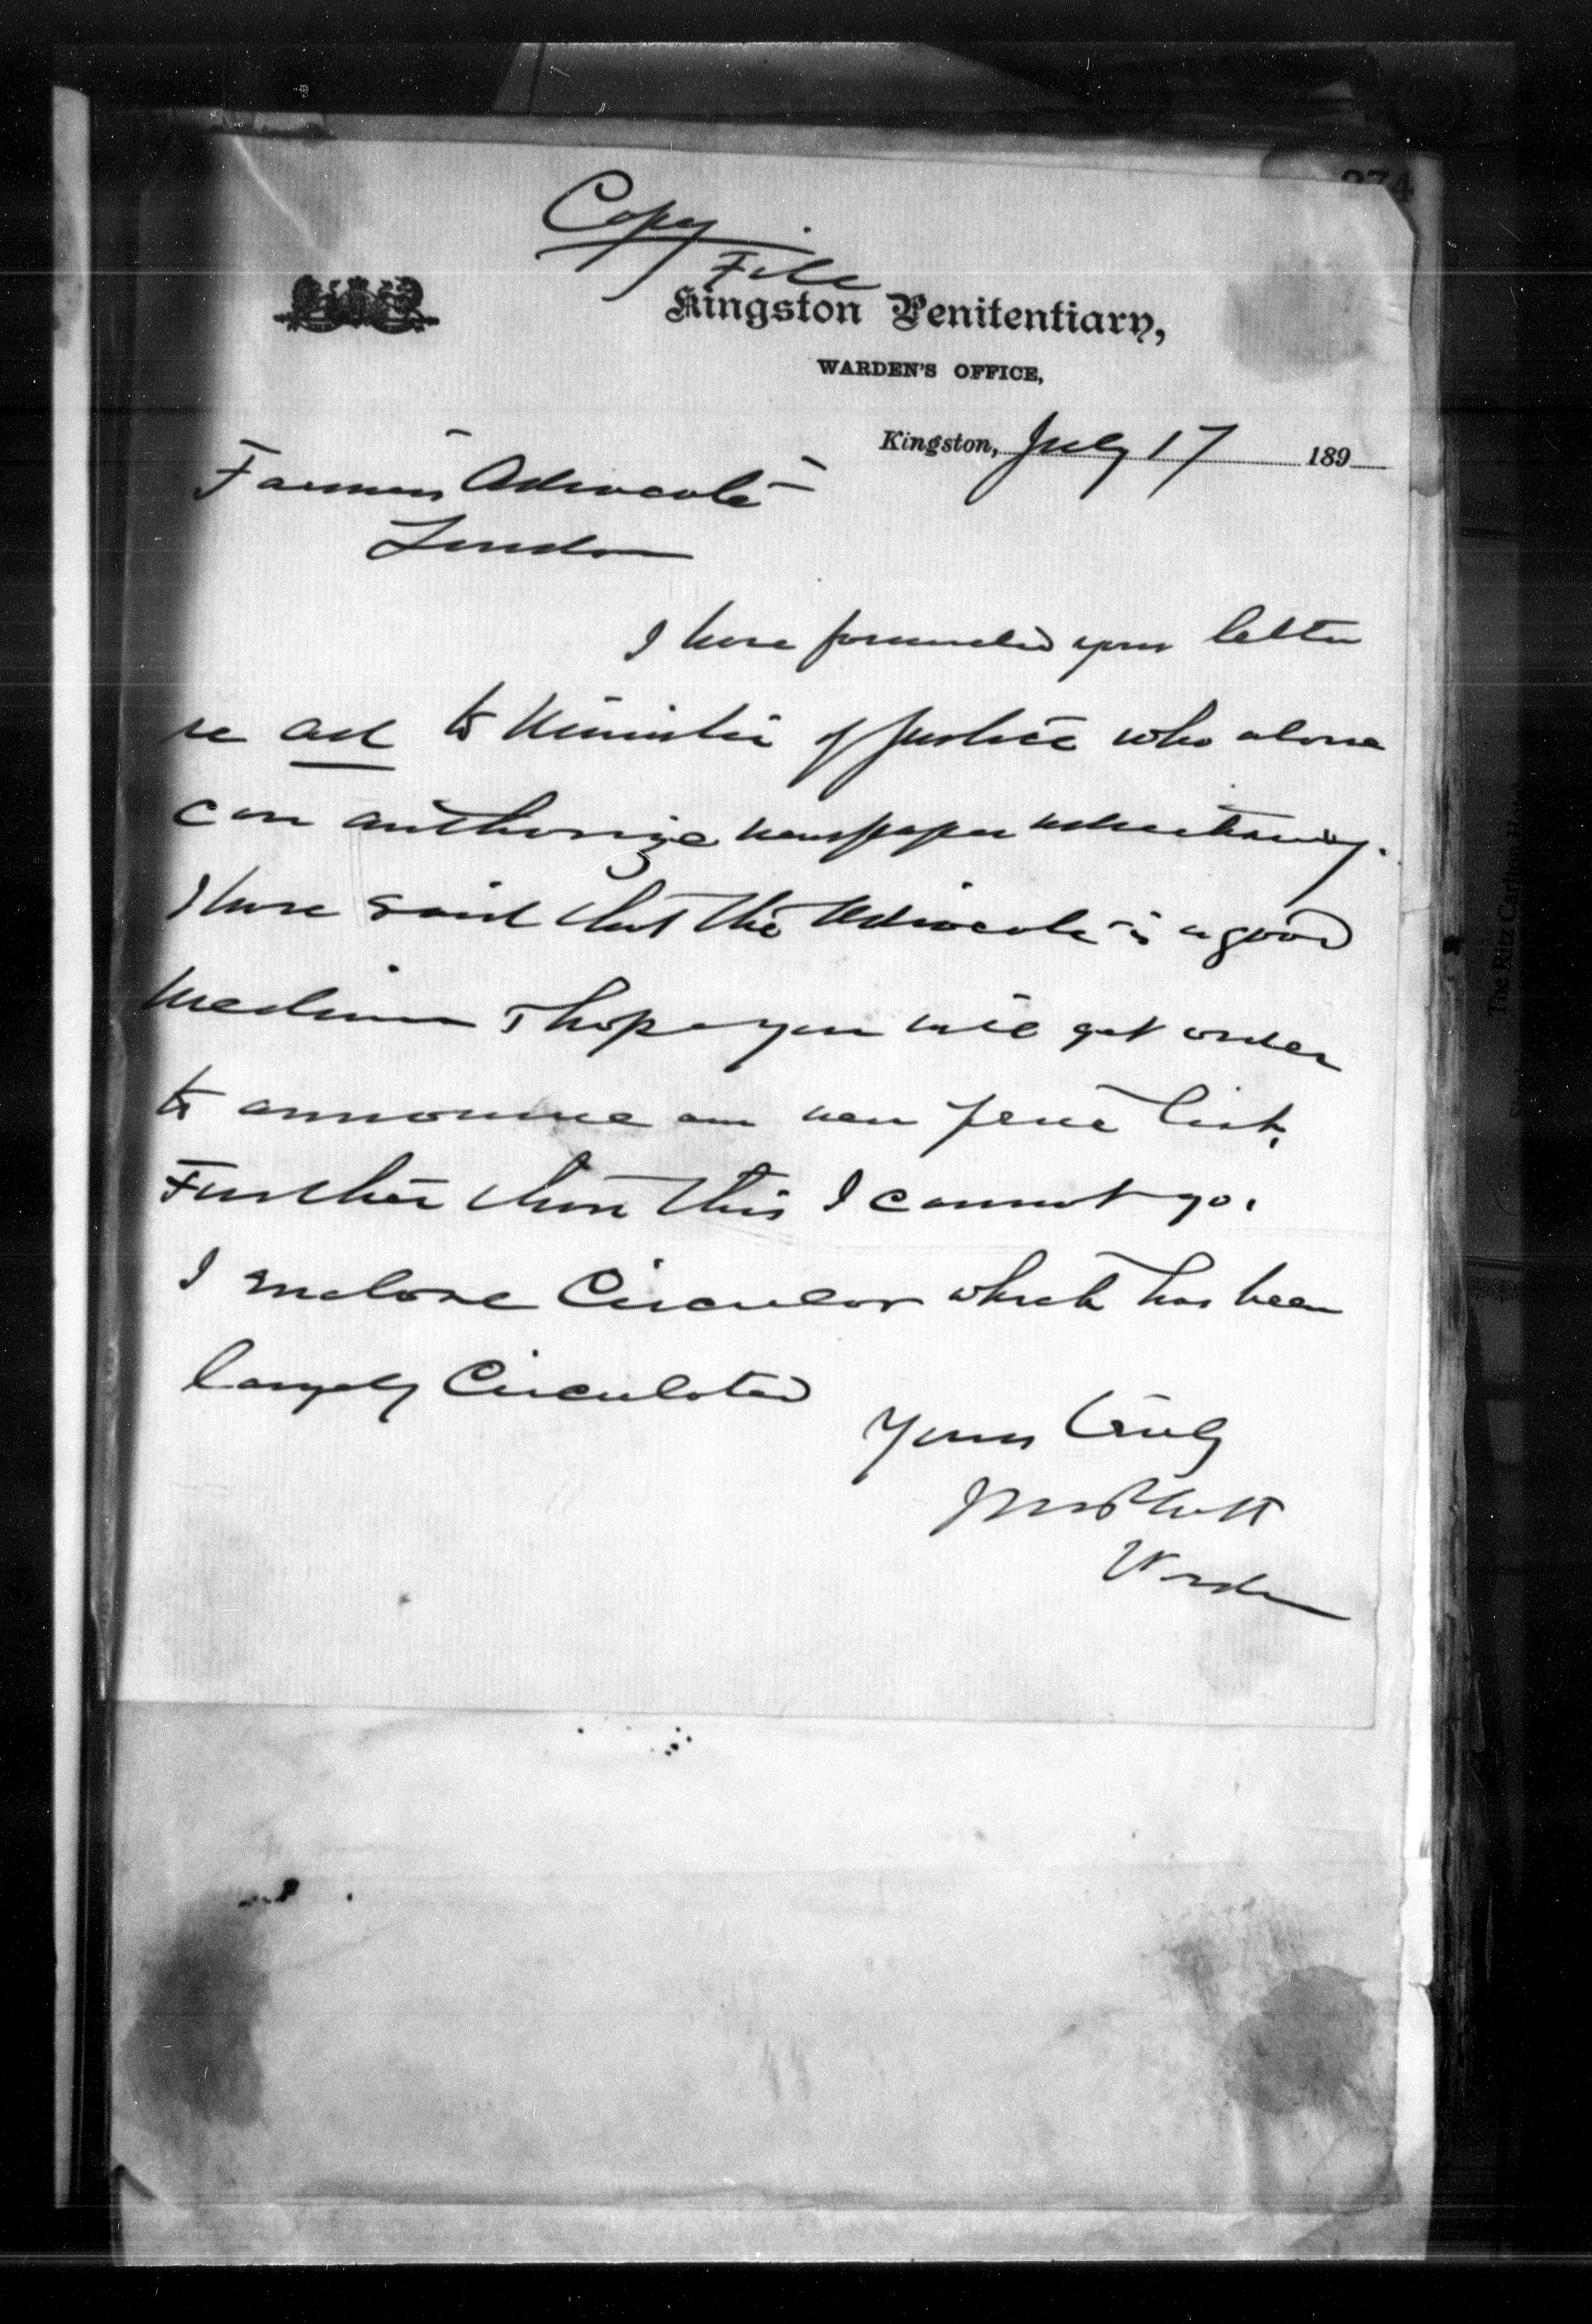 274
Copy
File
Kingston Penitentiary,
WARDEN'S OFFICE,
Kingston, July 17 189
Farmers Advocate
London
I have forwarded your letter
re ad to Minister of Justice who alone
can authorize newspaper advertising.
I have said that the Advocate is a good
medium I hope you will get order
to announce our new price list.
Further than this I cannot go.
I enclose Circular which has been
largely Circulated
Yours truly
Warden
The Ritz Carlton